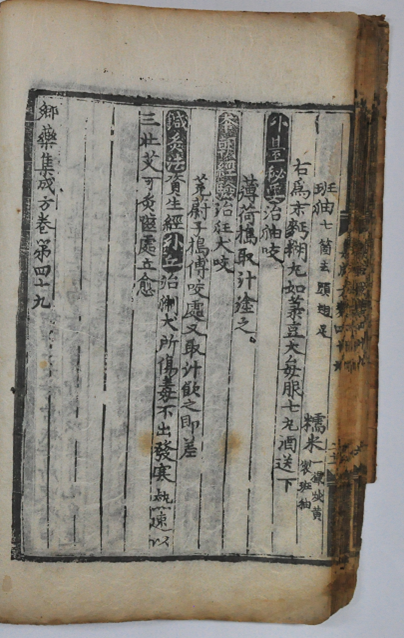 班猫七箇去頭翅足 糯米一撮炒黃
製班猫
右爲末麪糊丸如菉豆大每服七丸酒送下
外臺秘要治猫咬
薄荷擣取汁塗之
本朝經驗治狂犬咬
茺蔚子擣傅咬處又取汁飮之即差
鍼灸法資生經外丘治猘犬所傷毒不出發寒熱速以
三壯艾可灸齧處立愈
鄕藥集成方卷第四十九